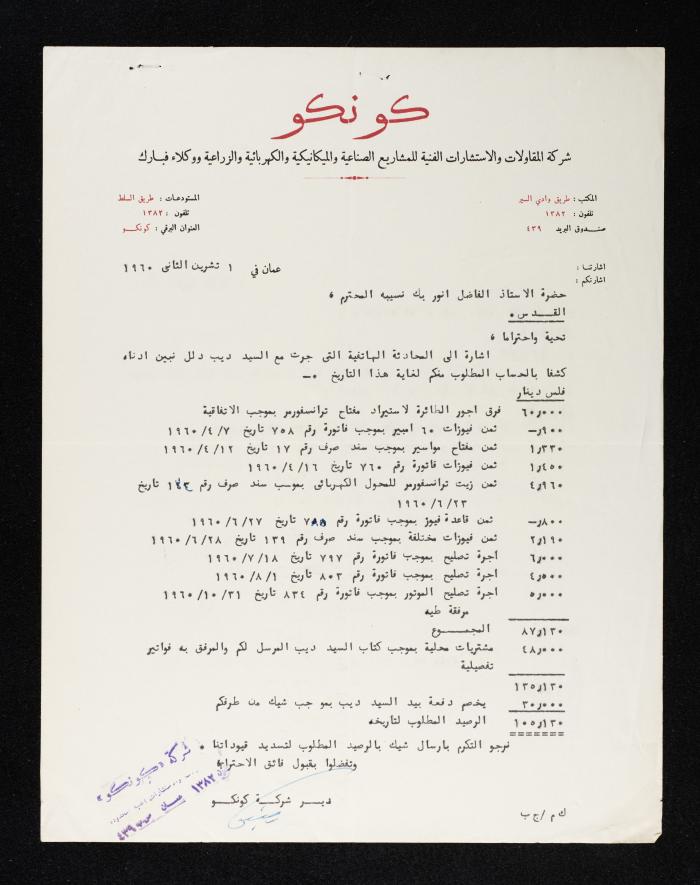 كونكو
شركة المقاولات والاستشارات الفنية للمشاريع الصناعية والميكانيكية والكهربائية والزراعية ووكلاء فبارك
المكتب : طريق وادي السير
تلفون : ١٣٨٢
صندوق البريد ٤٣٩
المستودعات : طريق السلط
تلفون : ١٣٨٢
العنوان البرقي : كونكو
اشارتنا :
اشارتكم :
عمان في ١ تشرين الثانى ١٩٦٠
حضرة الاستاذ الفاضل انور بك نسيبه المحترم ،
القدس .
تحية واحتراما ،
اشارة الى المحادثة الهاتفية التى جرت مع السيد ديب دلل نبين ادناه
كشفا بالحساب المطلوب منكم لغاية هذا التاريخ .-
فلس دينار
٦٠ر٠٠٠ فرق اجور الطائرة لاستيراد مفتاح ترانسفورمر بموجب الاتفاقية
-ر٩٠٠ ثمن فيوزات ٦٠ امبير بموجب فاتورة رقم ٧٥٨ تاريخ ١٩٦٠/٤/٧
١ر٣٣٠ ثمن مفتاح مواسير بموجب سند صرف رقم ١٧ تاريخ ١٩٦٠/٤/١٢
١ر٤٥٠ ثمن فيوزات فاتورة رقم ٧٦٠ تاريخ ١٩٦٠/٤/١٦
٤ر٩٦٠ ثمن زيت ترانسفورمز للمحول الكهربائى بموسب سند صرف رقم تاريخ
١٩٦٠/٦/٢٣
-ر٨٠٠ ثمن قاعدة فيوز بموجب فاتورة رقم ٧٨٥ تاريخ ١٩٦٠/٦/٢٧
٢ر١٩٠ ثمن فيوزات مختلفة بموجب سند صرف رقم ١٣٩ تاريخ ١٩٦٠/٦/٢٨
٦ر٠٠٠ اجرة تصليح بموجب فاتورة رقم ٧٩٧ تاريخ ١٩٦٠/٧/١٨
٤ر٥٠٠ اجرة تصليح بموجب فاتورة رقم ٨٠٣ تاريخ ١٩٦٠/٨/١
٥ر٠٠٠ اجرة تصليح الموتور بموجب فاتورة رقم ٨٣٤ تاريخ ١٩٦٠/١٠/٣١
مرفقة طيه
٨٧ر١٣٠ المجموع
٤٨ر٠٠٠ مشتريات محلية بموجب كتاب السيد ديب المرسل لكم والمرفق به فواتير
تفصيلية
١٣٥ر١٣٠
٣٠ر٠٠٠ يخصم دفعة بيد السيد ديب بمو جب شيك من طرفكم
١٠٥ر١٣٠ الرصيد المطلوب لتاريخه
نرجو التكرم بارسال شيك بالرصيد المطلوب لتسديد قيوداتنا .
وتفضلوا بقبول فائق الاحترام
دير شركة كونكو
ك م /ج ب
شركة «كونكو»
١٣٨٢
عمان ص.ب ٤٣٩